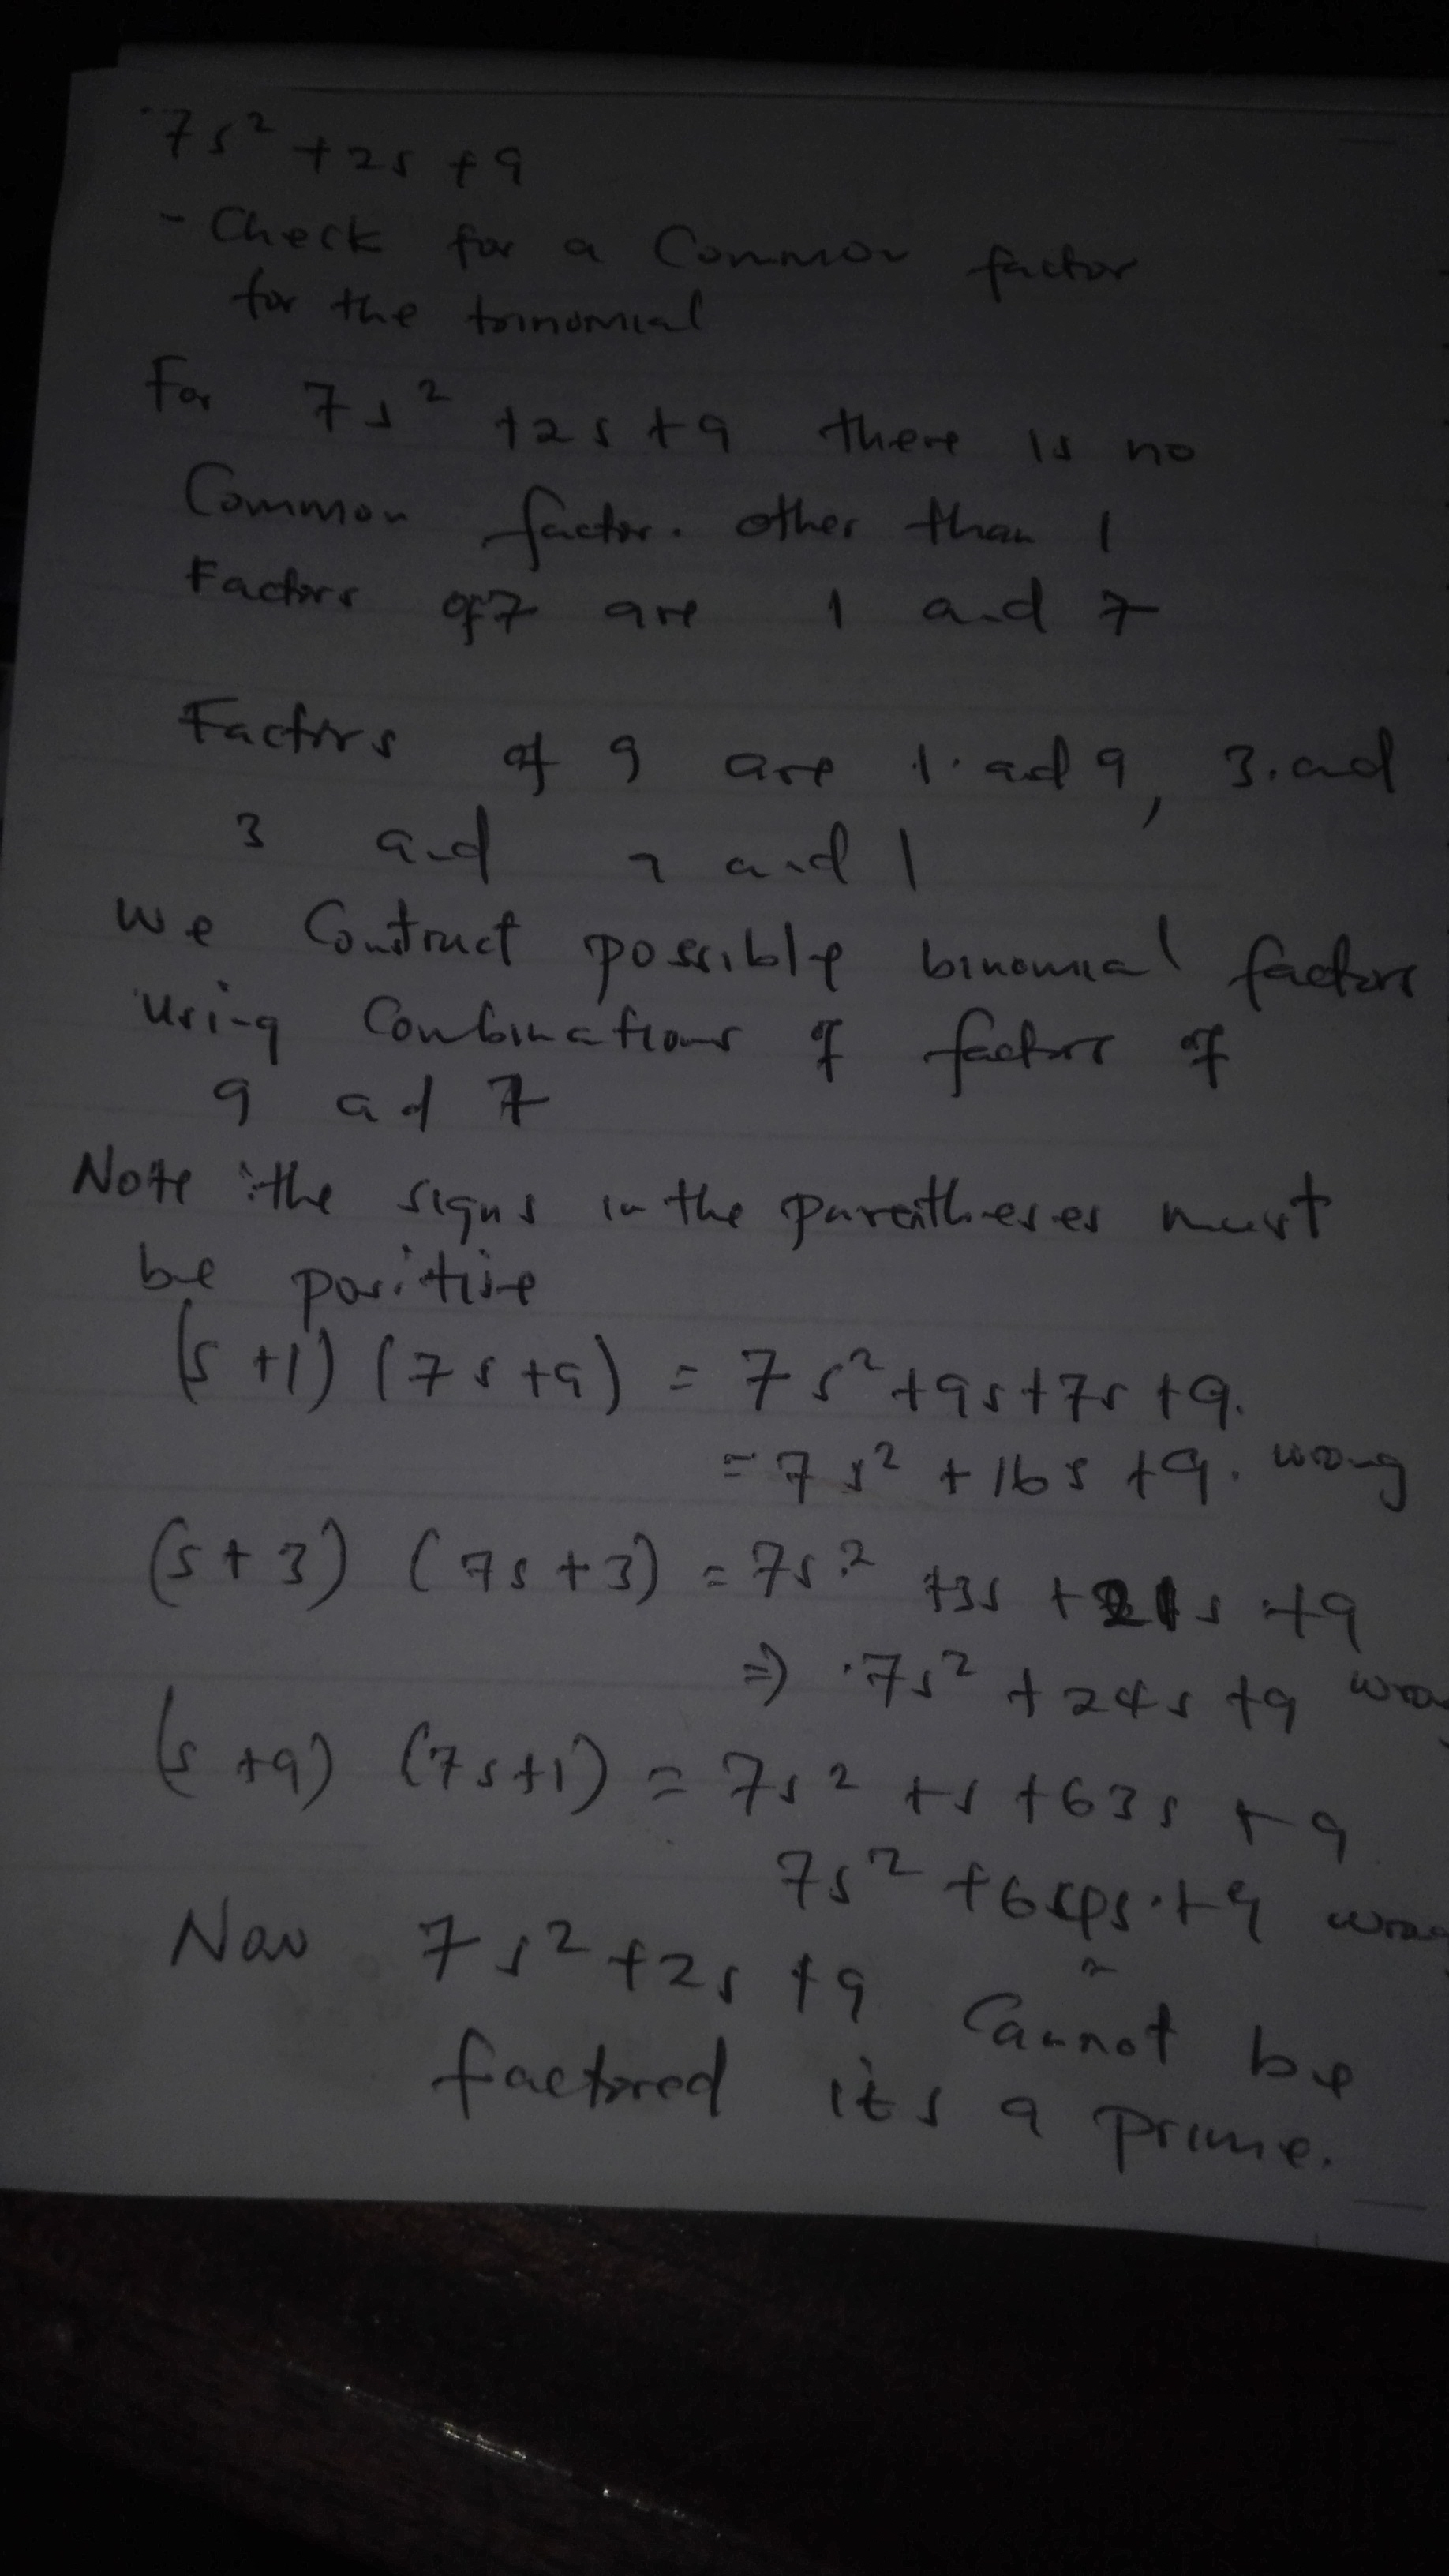 7s² + 2s + 9
- Check for a Common factor
for the trinomial
For 7s² + 2s + 9 there is no
Common factor. other than 1
Factors of 7 are 1 and 7
Factors of 9 are 1 and 9, 3 and
3 and 9 and 1
we Construct possible binomial factors
using Combinations of factors of
9 and 7
Note : the signs in the parentheses must
be positive
(s + 1) (7s + 9) = 7s² + 9s + 7s + 9.
= 7s² + 16s + 9. wrong
(s + 3) (7s + 3) = 7s² + 3s + 21s + 9
=> 7s² + 24s + 9 wrong
(s + 9) (7s + 1) = 7s² + s + 63s + 9
7s² + 64s + 9 wrong
Now 7s² + 2s + 9 Cannot be
factored its a prime.